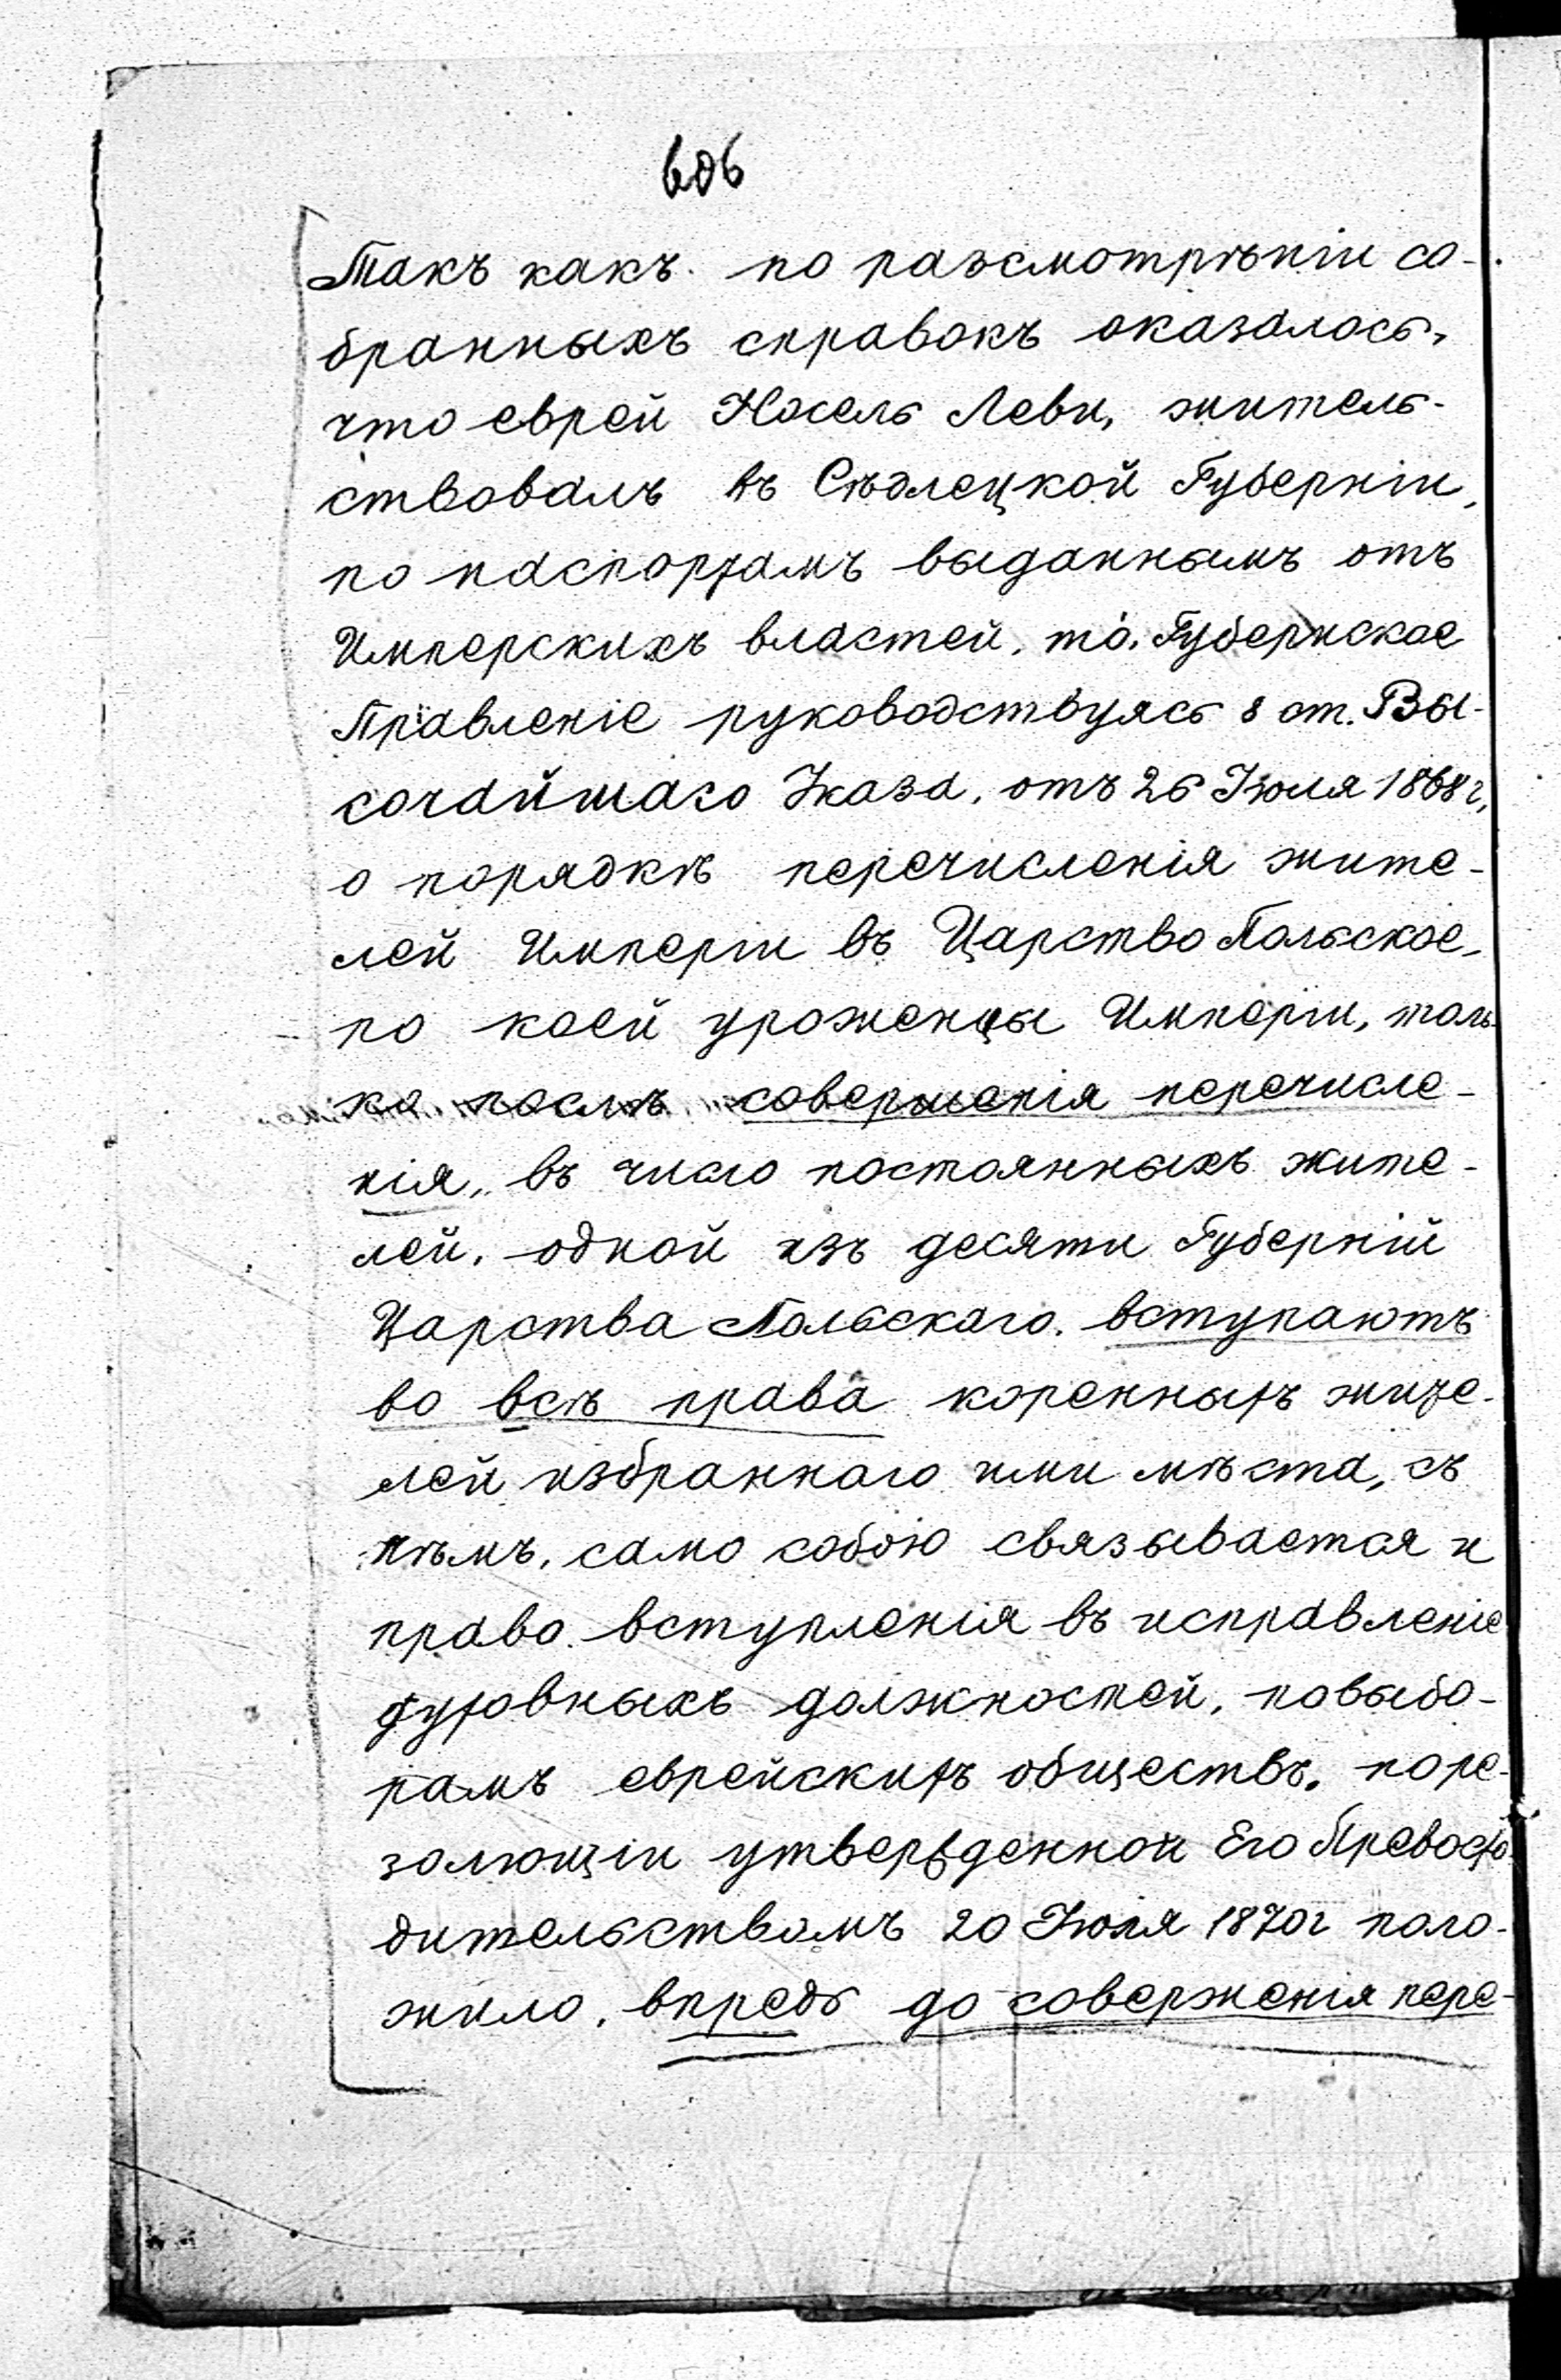 606
Такъ какъ по разсмотрѣніи со-
бранныхъ справокъ оказалось,
что еврей Носель Леви, житель-
ствовалъ въ Сѣдлецкой Губерніи,
по паспортамъ выданнымъ отъ
Имперскихъ властей, то. Губернское
Правленіе руководствуясь 8 ст. Вы-
сочайшаго Указа, отъ 26 Іюля 1868 г,
о порядкѣ перечисленія жите-
лей Имперіи въ Царство Польское,
по коей уроженцы Имперіи, толь-
ко послѣ совершенія перечисле-
нія, въ число постоянныхъ жите-
лей, одной изъ десяти Губерній
Царства Польскаго, вступаютъ
во всѣ права коренныхъ жите-
лей избраннаго ими мѣста, съ
чѣмъ, само собою связывается и
право вступленія въ исправленіе
духовныхъ должностей, повыбо-
рамъ еврейскихъ обществъ, поре-
золюціи утвержденной Его Превосхо-
дительствомъ 20 Іюля 1870г поло-
жило, впредь до совершенія пере-